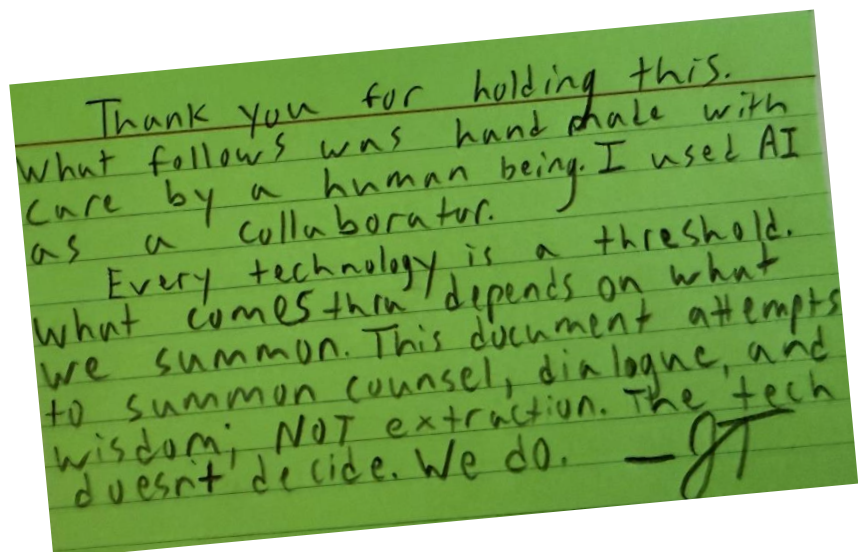 Thank you for holding this.
What follows was hand made with
care by a human being. I used AI
as a collaborator.
Every technology is a threshold.
What comes thru depends on what
we summon. This document attempts
to summon counsel, dialogue, and
wisdom; NOT extraction. The tech
doesn't decide. We do. —JT